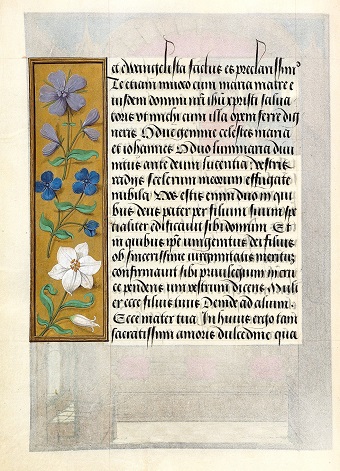 et ewangelista factus es preclarissim9
Te etiam inuoco cum maria matre e
iusdem domini nri ihu xpristi salua
toris vt michi cum illa opem ferre dig
neris O due gemme celestes maria
et iohannes O duo luminaria diui
nitus ante deum lucentia: vestris
radijs scelerum meorum effugate
nubila Vos estis enim duo in qui
bus deus pater per filium suum spe
cialiter edificauit sibi domum Et
in quibus ipse vnigenitus dei filius
ob sincerissime virginitatis meritum
confirmauit sibi priuilegium in cru
ce pendens vni vestrum dicens Muli
er ecce filius tuus Deinde ad alium
Ecce mater tua In huius ergo tam
sacratissimi amoris dulcedine qua